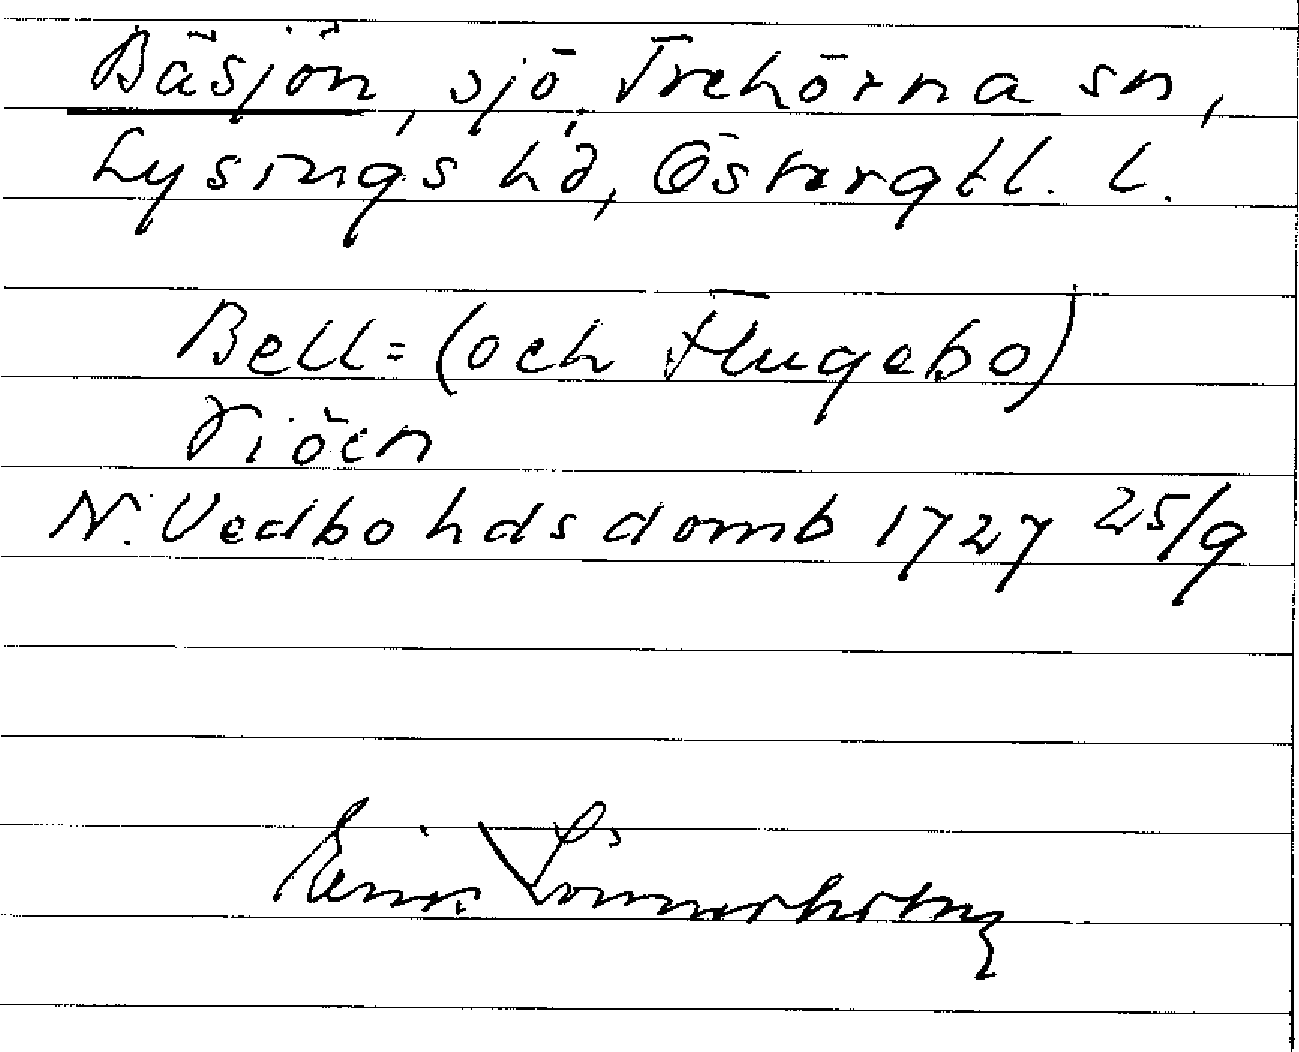 Bäsjön, sjö, Trehörna sn,
Lysings hd, Östergtl. l.
Bell= (och Flugebo)
Siöen
N. Vedbo hds domb 1727 25/9